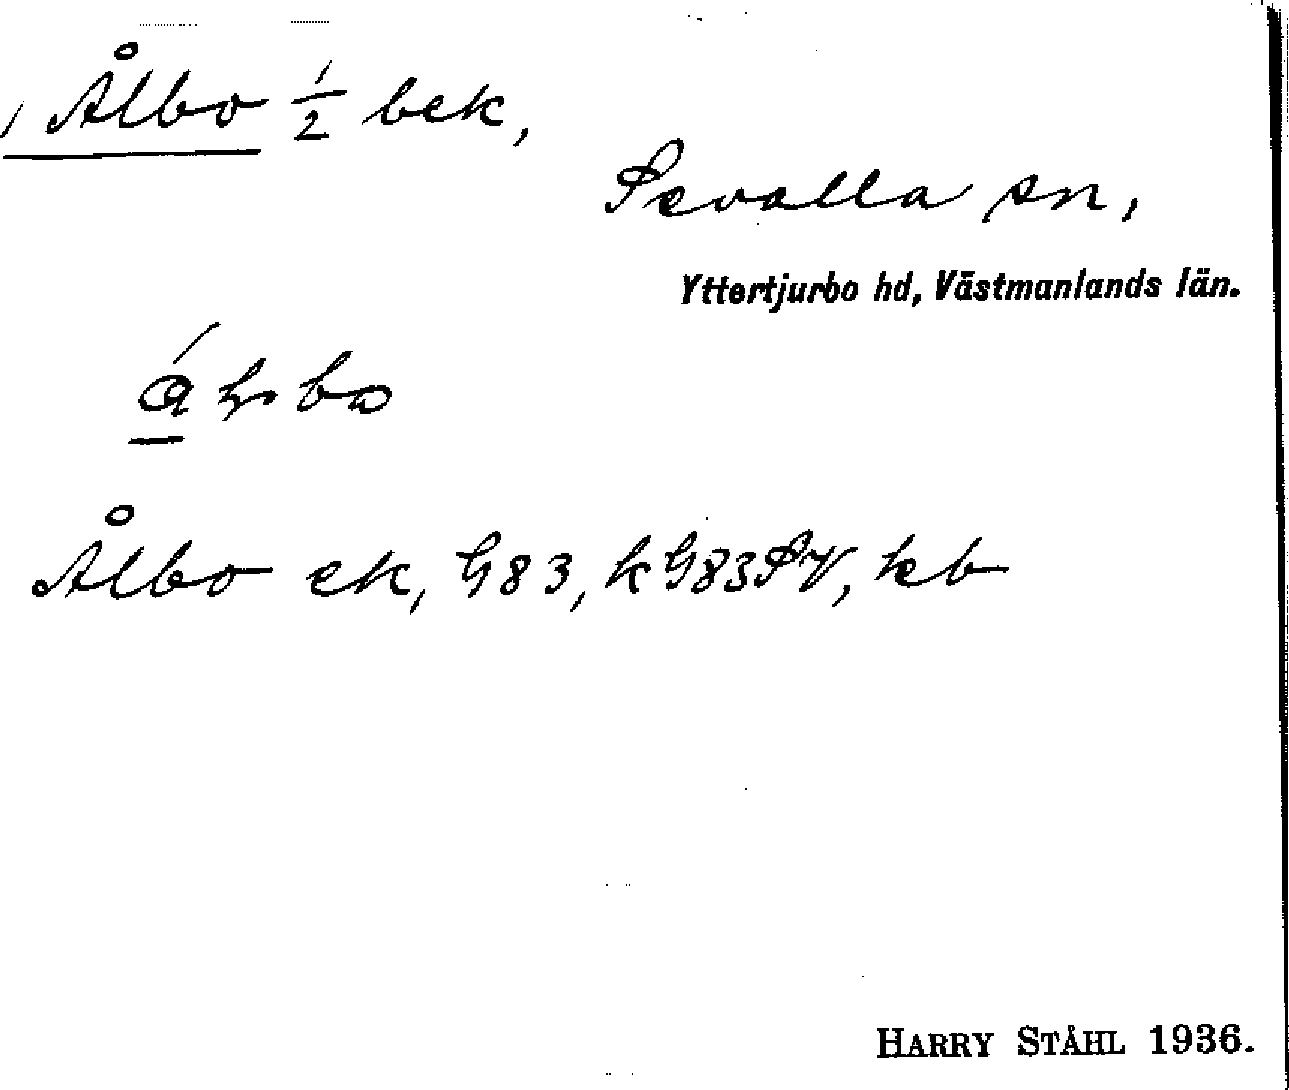 Ålbo ½ bek,
Sevalla sn,
Yttertjurbo hd, Västmanlands län.
Ålbo ek, G83, k G83SV, kb
HARRY STÅHL 1936.